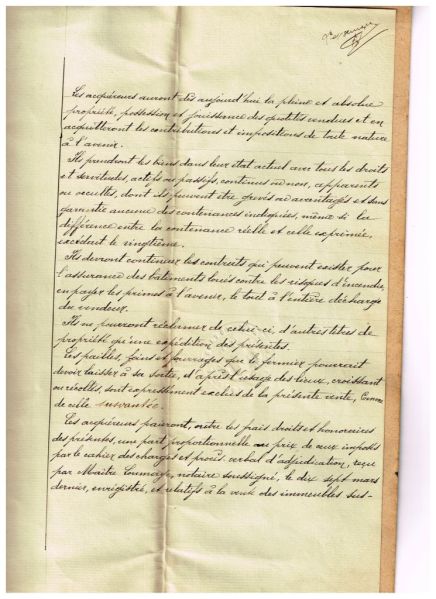 Les acquéreurs auront dès aujourd'hui la pleine et absolue
propriété, possession et jouissance des quotités vendues et en
acquitteront les contributions et impositions de toute nature
à l'avenir.
Ils prendront les biens dans leur état actuel avec tous les droits
et servitudes, actifs ou passifs, continus ou non, apparents
ou occultes, dont ils peuvent être grevés ou avantagés et sans
garantie aucune des contenances indiquées, même si la
différence entre la contenance réelle et celle exprimée,
excédait le vingtième.
Ils devront continuer les contrats qui peuvent exister pour
l'assurance des bâtiments loués contre les risques d'incendie,
en payer les primes à l'avenir, le tout à l'entière décharge
du vendeur.
Ils ne pourront réclamer de celui-ci, d'autres titres de
propriété qu'une expédition des présentes.
Les pailles, foins et fourrages que le fermier pourrait
devoir laisser à sa sortie, d'après l'usage des lieux, croissant
ou récoltés, sont expressément exclus de la présente vente, comme
de celle suivante.
Les acquéreurs paieront, outre les frais droits et honoraires
des présentes, une part proportionnelle au prix de ceux imposés
par le cahier des charges et procès-verbal d'adjudication, reçu
par Maître notaire soussigné, le dix sept mars
dernier, enregistré, et relatifs à la vente des immeubles sus-